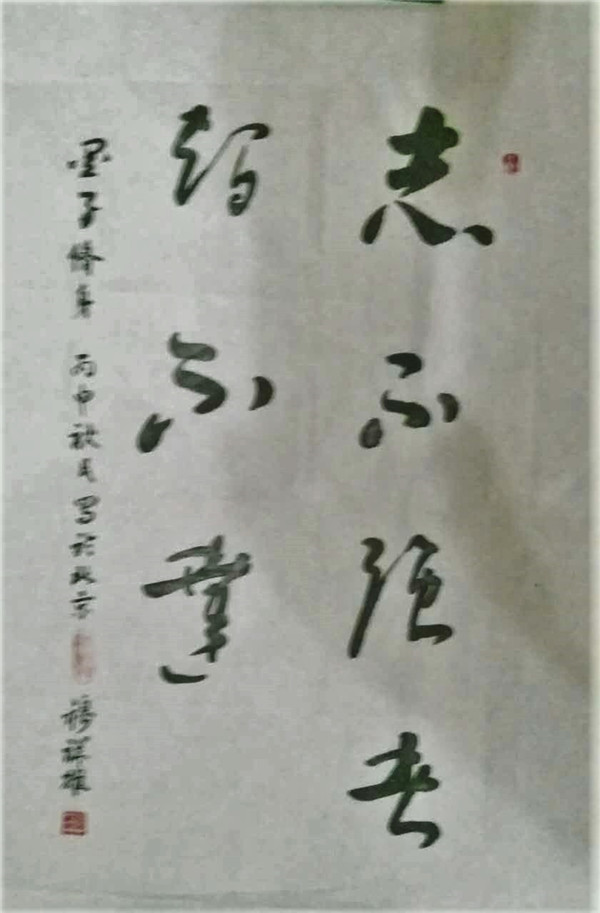 志不强者
智不達
墨子修身 丙申秋月写於北京 穆祥雄